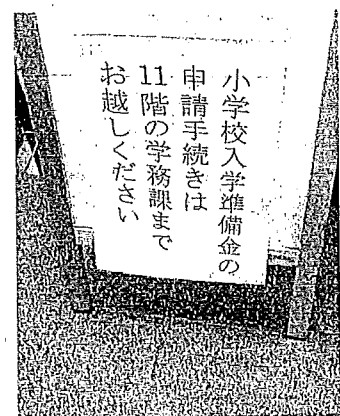 小学校入学準備金の
申請手続きは
11階の学務課まで
お越しください